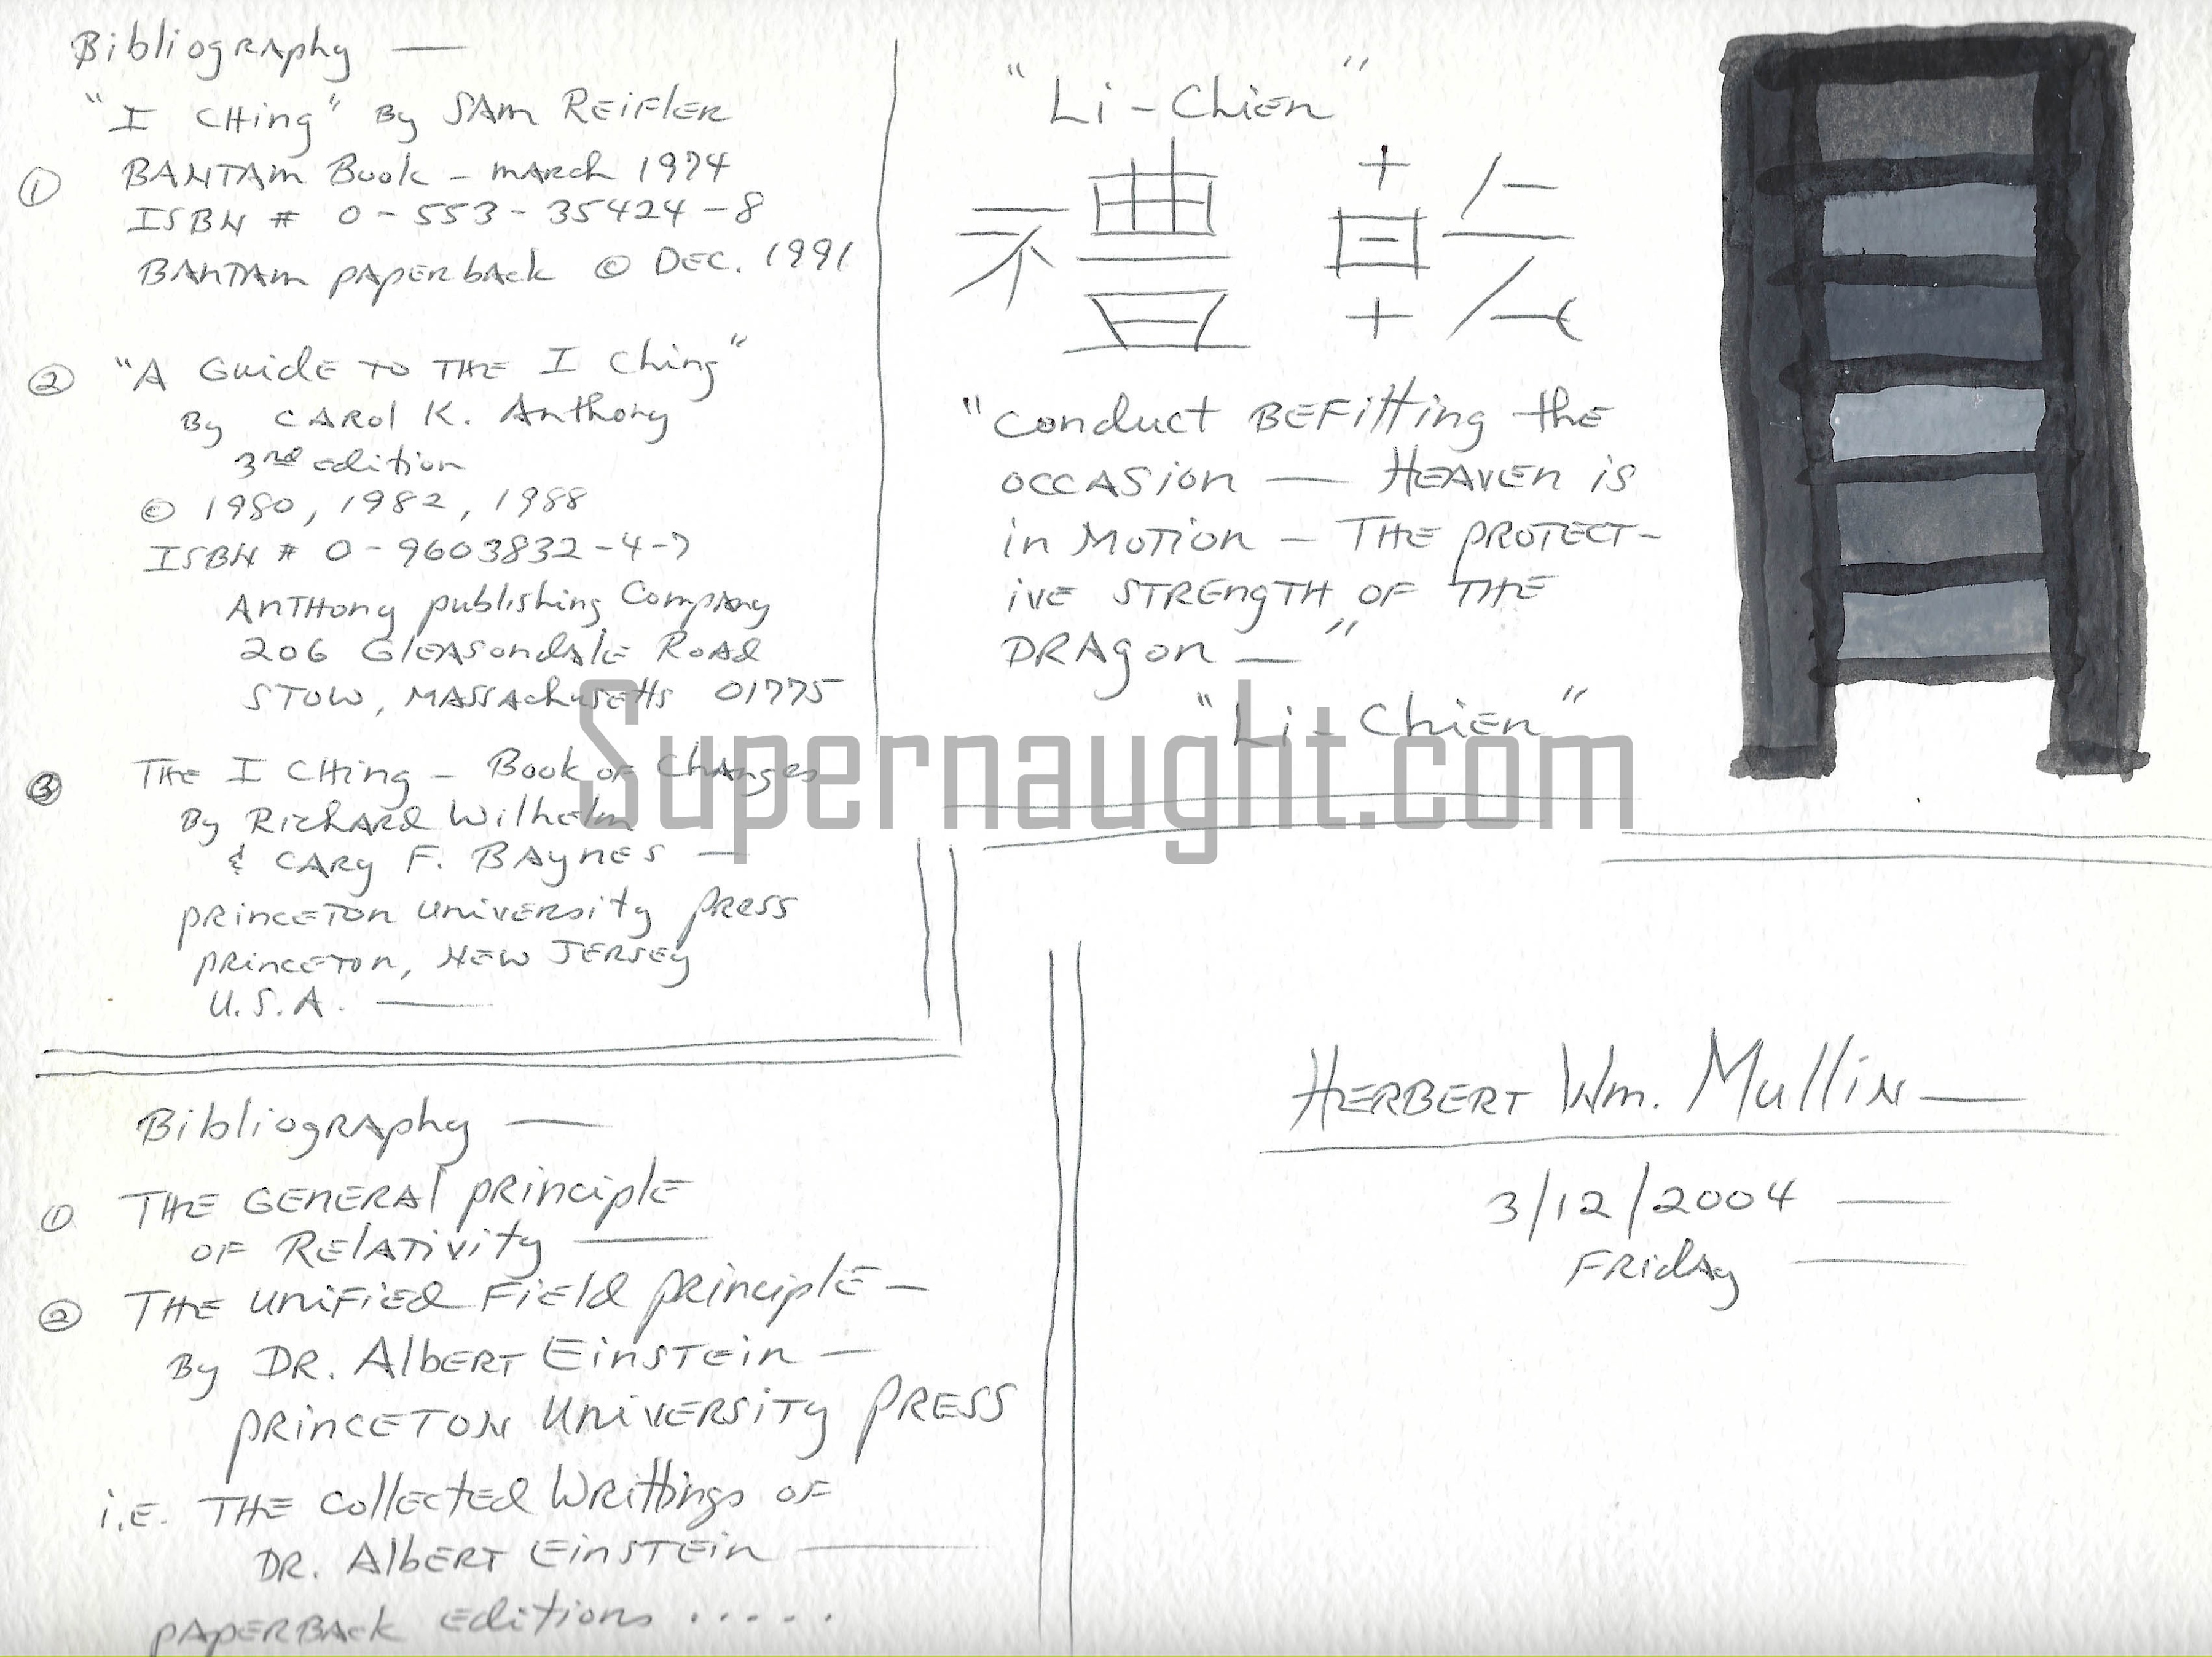 Bibliography —
"I CHing" By SAm REiFlER
① BANTAm Book - mARch 1974
ISBN # 0-553-35424-8
BANTAM pAPERback © DEC. 1991
② "A GuidE TO THE I Ching"
By CARol K. Anthony
3rd edition
© 1980, 1982, 1988
ISBN # 0-9603832-4-7
AnTHony publishing Company
206 GlEASondAlE RoAd
STOW, MASSAchusETTs 01775
③ THE I CHing - Book oF Changes
By RichARd Wilhelm
& CARy F. BAyNES —
pRincETon univERsity pRESS
pRincETon, NEW JERSEy
U.S.A. —
"Li-Chien"
禮 乾
"Conduct BEFitting the
occASion — HEAVEN is
in MoTion — THE pROTECT-
ivE STREngTH OF THE
DRAgon — "
"Li-Chien"
Bibliography —
① THE GENERAl pRinciplE
oF RElATivity —
② THE uniFiEd FiEld pRinciplE —
By DR. AlbERT EinSTEin —
pRincETon univERSiTy pRESS
i.E. THE collEcTEd WRittings oF
DR. AlbERT EinSTEin —
pApERBAck Editions .....
HERBERT Wm. Mullin —
3/12/2004 —
FRidAy —
Supernaught.com